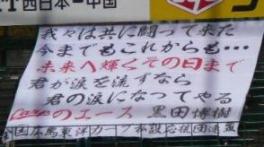 T西日本-中国
我々は共に闘って来た
今までもこれからも…
未来へ輝くその日まで
君が涙を流すなら
君の涙になってやる
Carpのエース 黒田博樹
全国広島東洋カープ私設応援団連盟